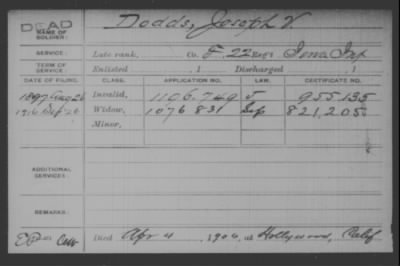 DEAD
NAME OF SOLDIER: Dodds, Joseph V.
SERVICE: Late rank, Co. F, 22 Reg't Iowa Inf
TERM OF SERVICE: Enlisted , 1 Discharged , 1
DATE OF FILING. CLASS. APPLICATION NO. LAW. CERTIFICATE NO.
1897 Aug 26 Invalid, 1196.749 J 955135
1916 Sep 26 Widow, 1076 831 Sep 821,205
Minor,
ADDITIONAL SERVICES:
REMARKS:
Died Apr 4, 1906, at Hollywood, Calif